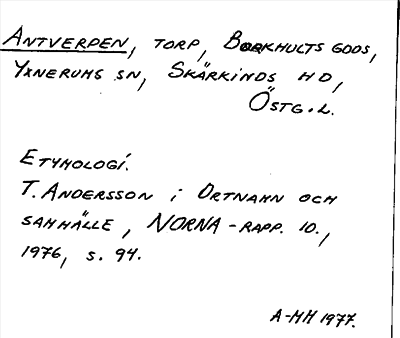 ANTVERPEN, TORP, BORKHULTS GODS,
YXNERUMS SN, SKÄRKINDS HD,
ÖSTG.L.
ETYMOLOGI.
T. ANDERSSON i ORTNAMN OCH
SAMHÄLLE, NORNA-RAPP. 10.,
1976, s. 94.
A-MH 1977.